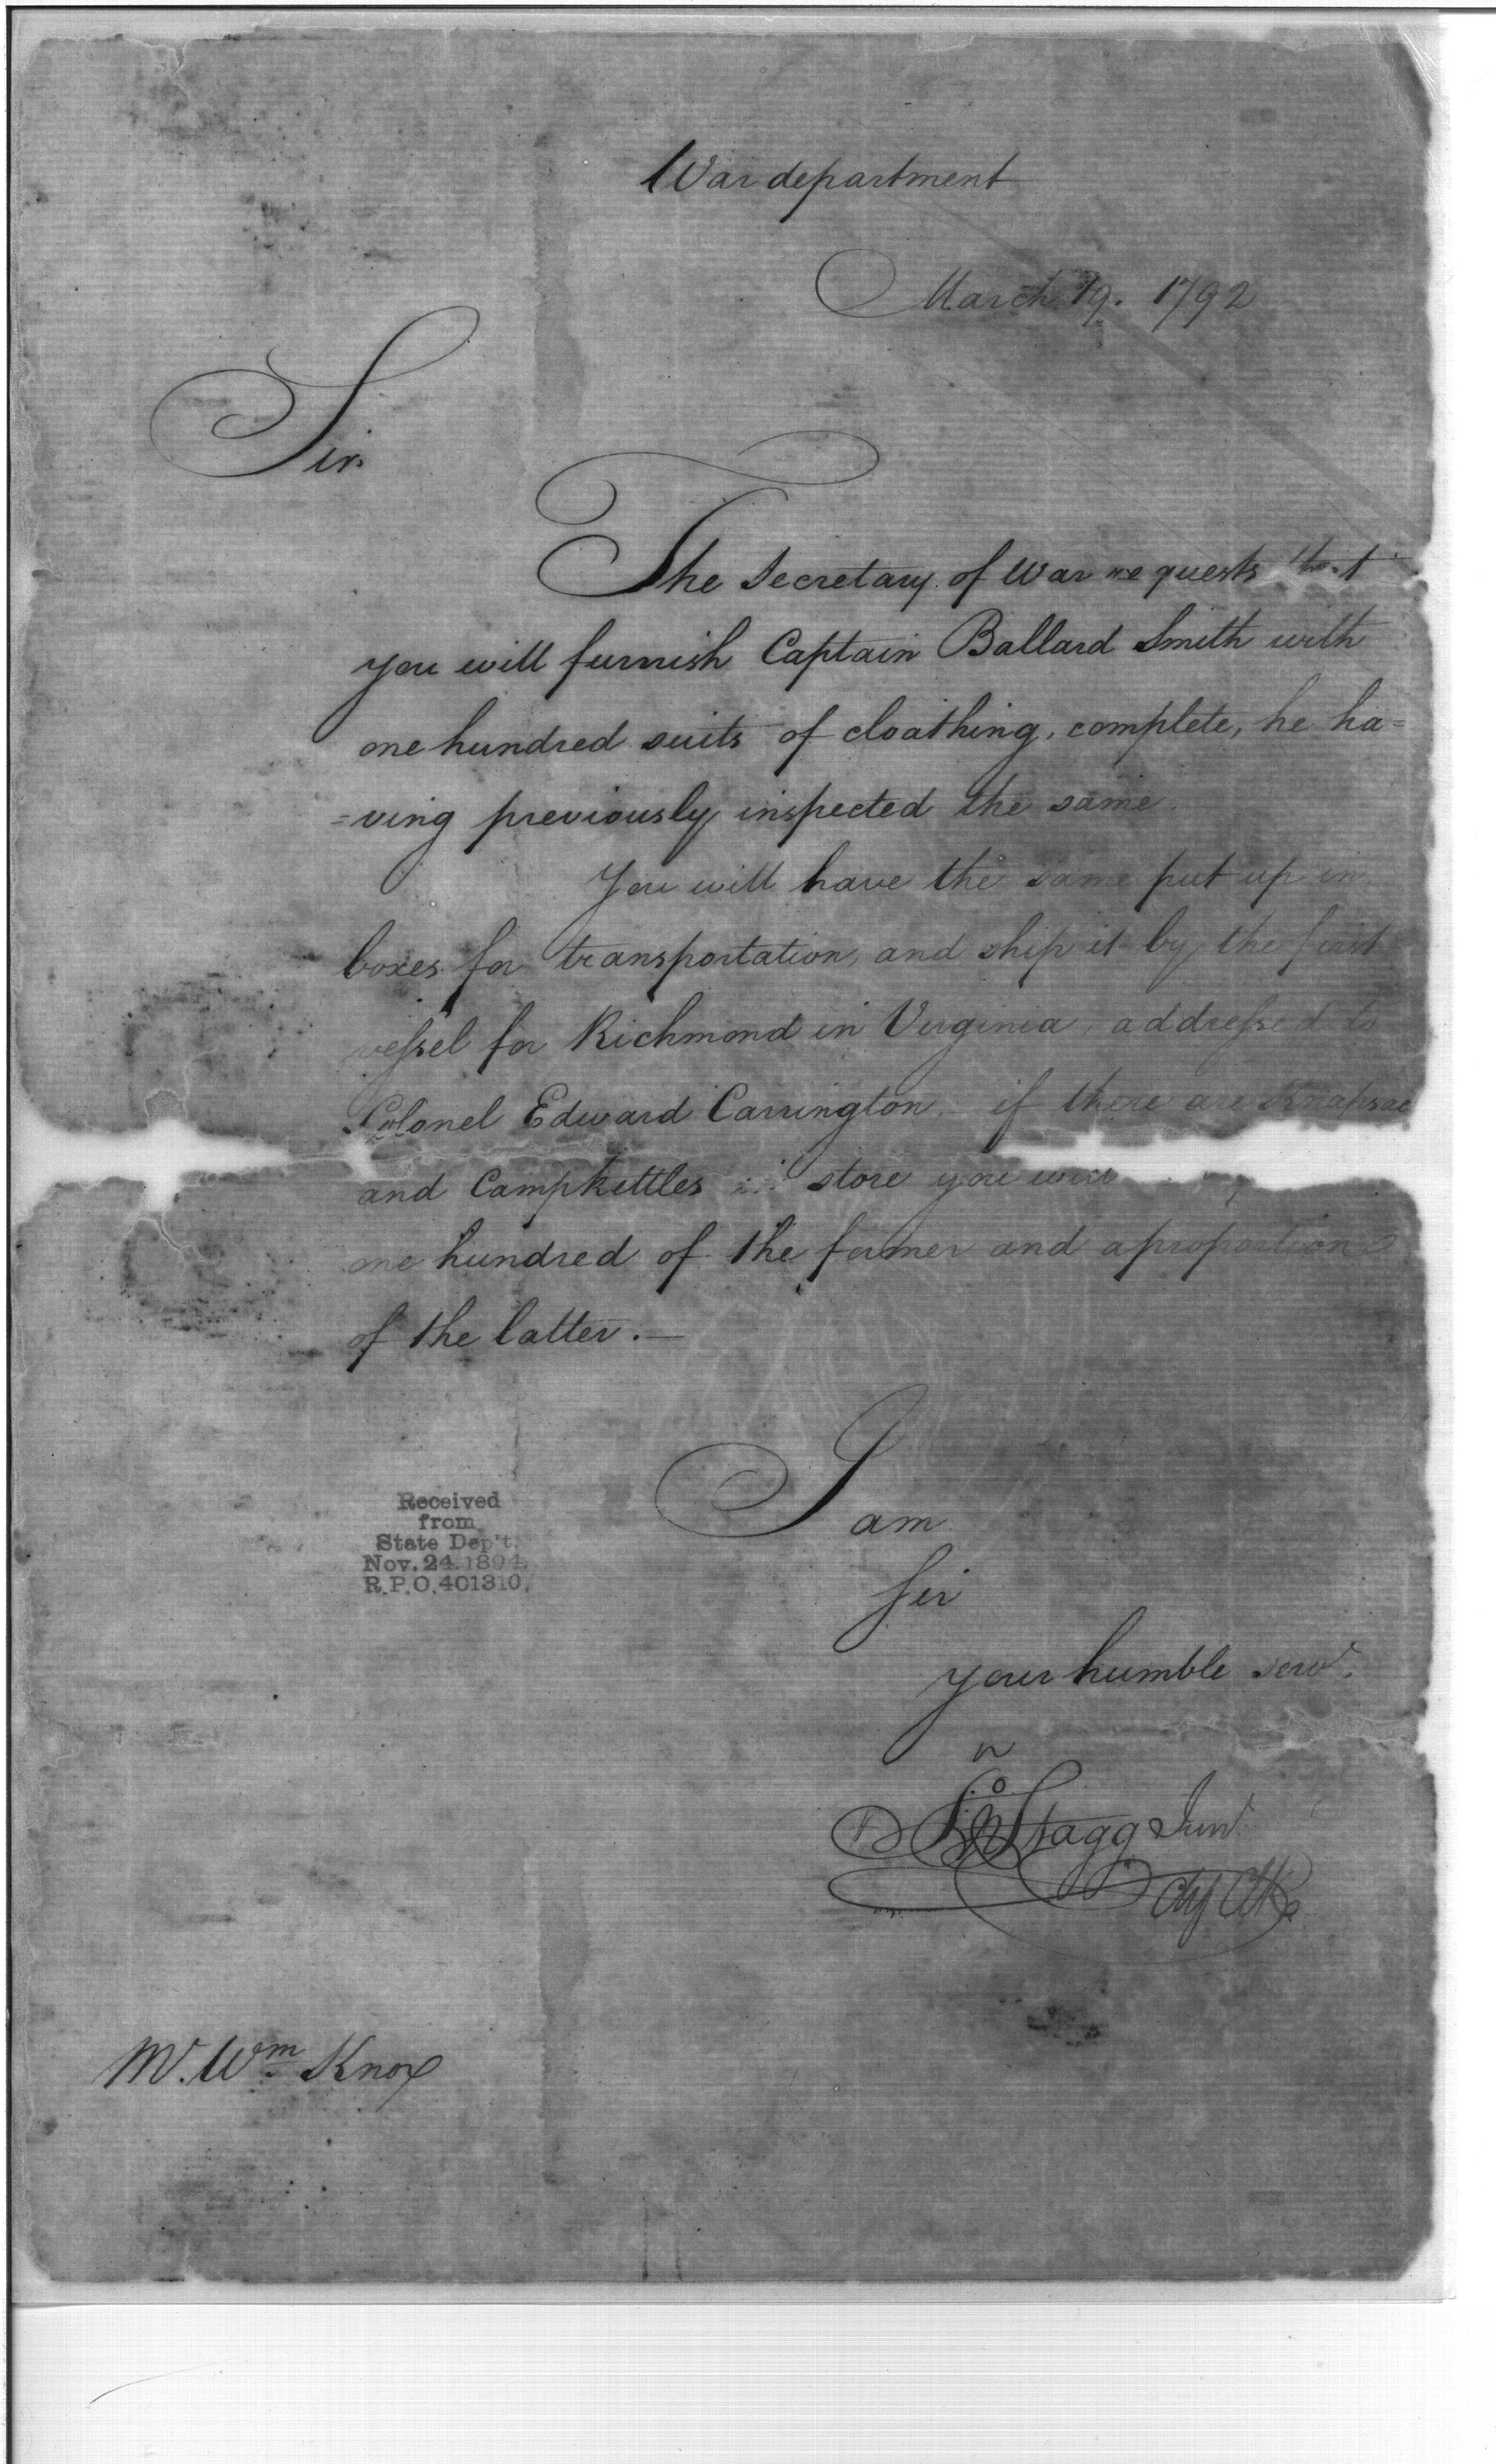 War department
March 19. 1792
Sir
The Secretary of War requests that
you will furnish Captain Ballard Smith with
one hundred suits of cloathing, complete, he ha=
=ving previously inspected the same.
You will have the same put up in
boxes for transportation, and ship it by the first
vessel for Richmond in Virginia, addressed to
Colonel Edward Carrington, if there are Knapsac
and Campkettles in store you will
one hundred of the former and a proportion
of the latter. —
I am
Sir
your humble servt.
Jno Stagg Junr.
Received
from
State Dep't.
Nov. 24. 1894.
R.P.O. 401310.
Mr. Wm Knox